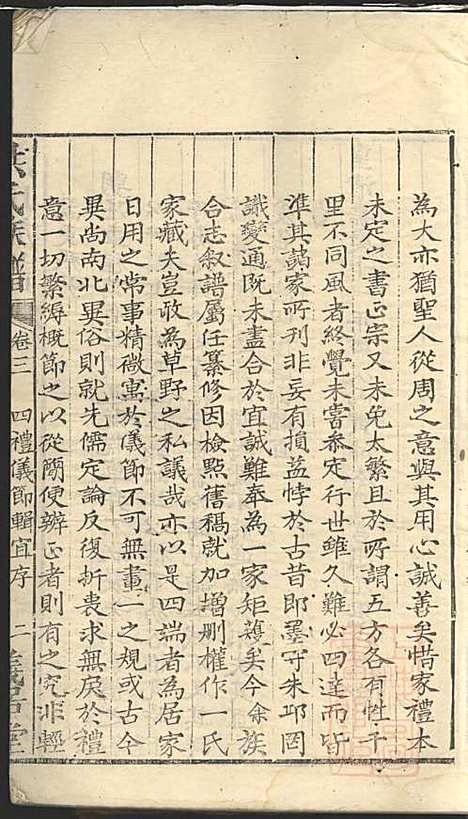 為大亦猶聖人從周之意與其用心誠善矣惜家禮本
未定之書正宗又未免太繁且於所謂五方各有性千
里不同風者終覺未嘗參定行世雖久難必四達而皆
準其譌家所刊非妄有損益悖於古昔即墨守朱邱罔
識變通既未盡合於宜誠難奉為一家矩薙矣今余族
合志叙譜屬任纂修因檢點舊稿就加增刪權作一氏
家藏夫豈敢為草野之私議哉亦以是四端者為居家
日用之常事精微寓於儀節不可無畫一之規或古今
異尚南北異俗則就先儒定論反復折衷求無戾於禮
意一切繁縟概節之以從簡便辨正者則有之究非輕
氏族譜 卷三 四禮儀節輯宜序 二 堂